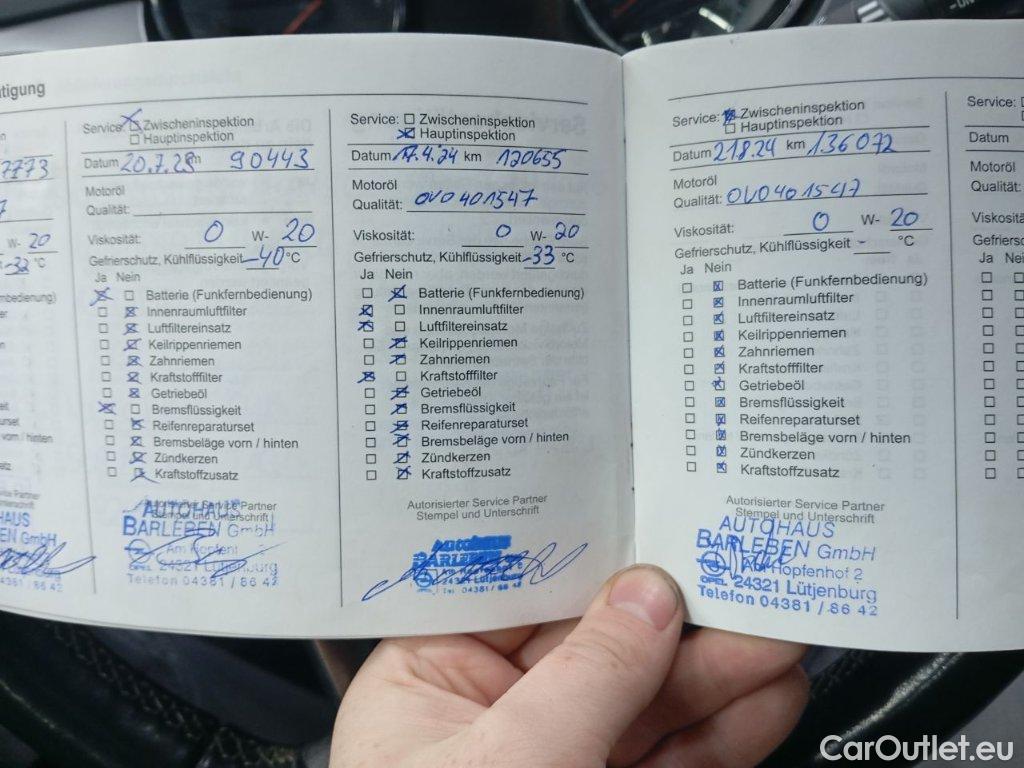 tigung
7773
7
W- 20
-32 °C
nbedienung)
vorn / hinten
HAUS
EN GmbH
Service: ☒ Zwischeninspektion
☐ Hauptinspektion
Datum 20.7.23 km 90443
Motoröl
Qualität:
Viskosität: 0 W- 20
Gefrierschutz, Kühlflüssigkeit -40 °C
Ja Nein
☒ ☐ Batterie (Funkfernbedienung)
☐ ☒ Innenraumluftfilter
☐ ☒ Luftfiltereinsatz
☐ ☒ Keilrippenriemen
☐ ☒ Zahnriemen
☐ ☒ Kraftstofffilter
☐ ☒ Getriebeöl
☒ ☐ Bremsflüssigkeit
☐ ☒ Reifenreparaturset
☐ ☒ Bremsbeläge vorn / hinten
☐ ☒ Zündkerzen
☐ ☒ Kraftstoffzusatz
Autorisierter Service Partner
Stempel und Unterschrift
AUTOHAUS
BARLEBEN GmbH
Am Hopfenhof 2
24321 Lütjenburg
Telefon 04381 / 86 42
Service: ☐ Zwischeninspektion
☒ Hauptinspektion
Datum 17.4.24 km 120655
Motoröl
Qualität: OVO401547
Viskosität: 0 W- 20
Gefrierschutz, Kühlflüssigkeit -33 °C
Ja Nein
☐ ☒ Batterie (Funkfernbedienung)
☒ ☐ Innenraumluftfilter
☒ ☐ Luftfiltereinsatz
☐ ☒ Keilrippenriemen
☐ ☒ Zahnriemen
☒ ☐ Kraftstofffilter
☐ ☒ Getriebeöl
☐ ☒ Bremsflüssigkeit
☐ ☒ Reifenreparaturset
☐ ☒ Bremsbeläge vorn / hinten
☐ ☒ Zündkerzen
☐ ☒ Kraftstoffzusatz
Autorisierter Service Partner
Stempel und Unterschrift
AUTOHAUS
BARLEBEN
24321 Lütjenburg
OPEL Tel 04381 / 86 42
Service: ☒ Zwischeninspektion
☐ Hauptinspektion
Datum 21.8.24 km 136072
Motoröl
Qualität: OVO401547
Viskosität: 0 W- 20
Gefrierschutz, Kühlflüssigkeit - °C
Ja Nein
☐ ☒ Batterie (Funkfernbedienung)
☐ ☒ Innenraumluftfilter
☐ ☒ Luftfiltereinsatz
☐ ☒ Keilrippenriemen
☐ ☒ Zahnriemen
☐ ☒ Kraftstofffilter
☐ ☒ Getriebeöl
☐ ☒ Bremsflüssigkeit
☐ ☒ Reifenreparaturset
☐ ☒ Bremsbeläge vorn / hinten
☐ ☒ Zündkerzen
☐ ☒ Kraftstoffzusatz
Autorisierter Service Partner
Stempel und Unterschrift
AUTOHAUS
BARLEBEN GmbH
Am Hopfenhof 2
OPEL 24321 Lütjenburg
Telefon 04381 / 86 42
Service: ☐
Datum
Motoröl
Qualität:
Viskosität
Gefriersc
Ja Nei
CarOutlet.eu